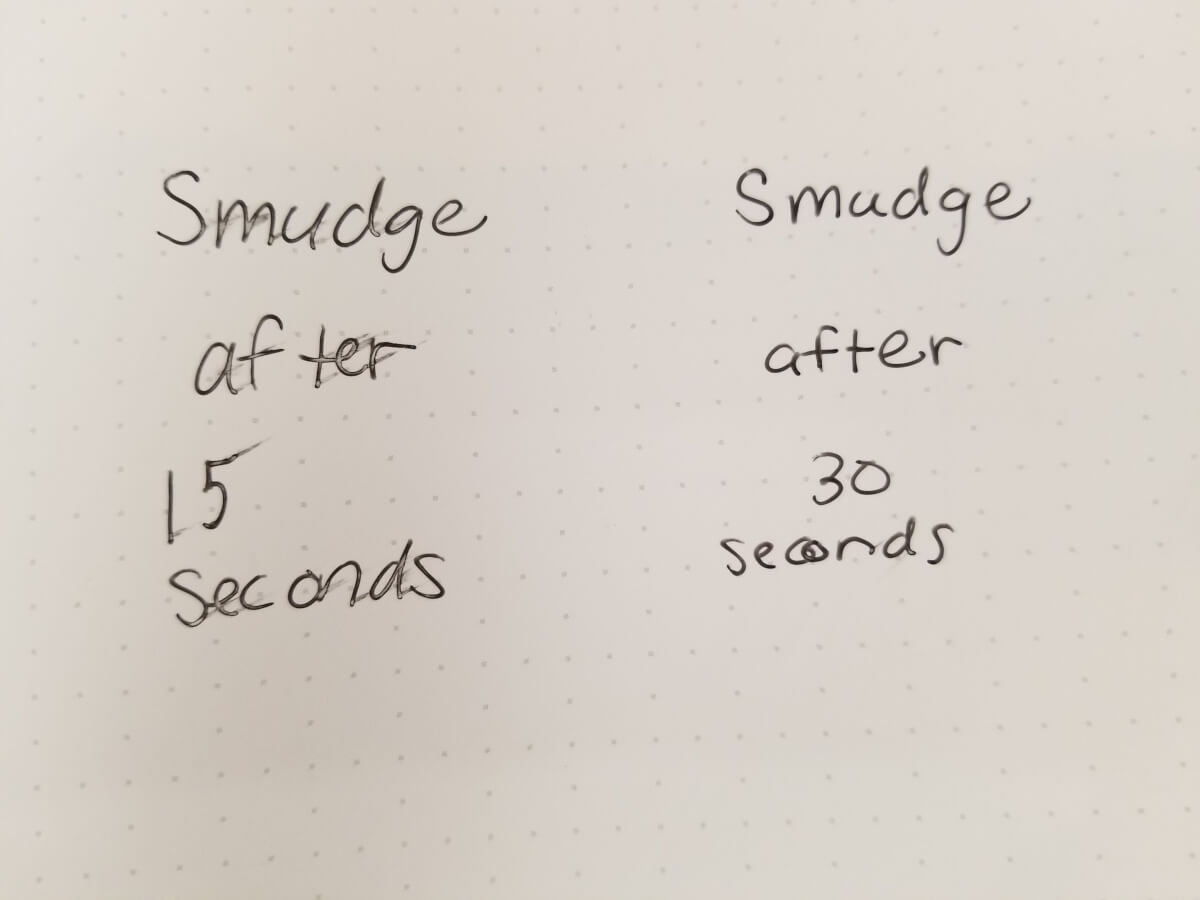 Smudge
after
15
seconds
Smudge
after
30
seconds